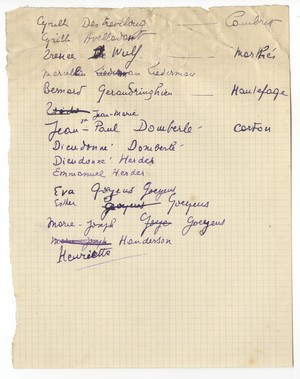 Cyrille Destreilous — Cambret
Cyrille Hoellevoet
Erence De Wulf — Marthiès
Liederman
Bernard Gerandringhien — Hautefage
Jean-Marie
Jean-Paul Domberle - carton
Dieudonné Domberlé
Dieudonné Herder
Emmanuel Herder
Eva Goeyens Goeyens
Esther Goeyens Goeyens
Marie-Joseph Goye Goeyens
Marie-Joseph Handerson
Henriette